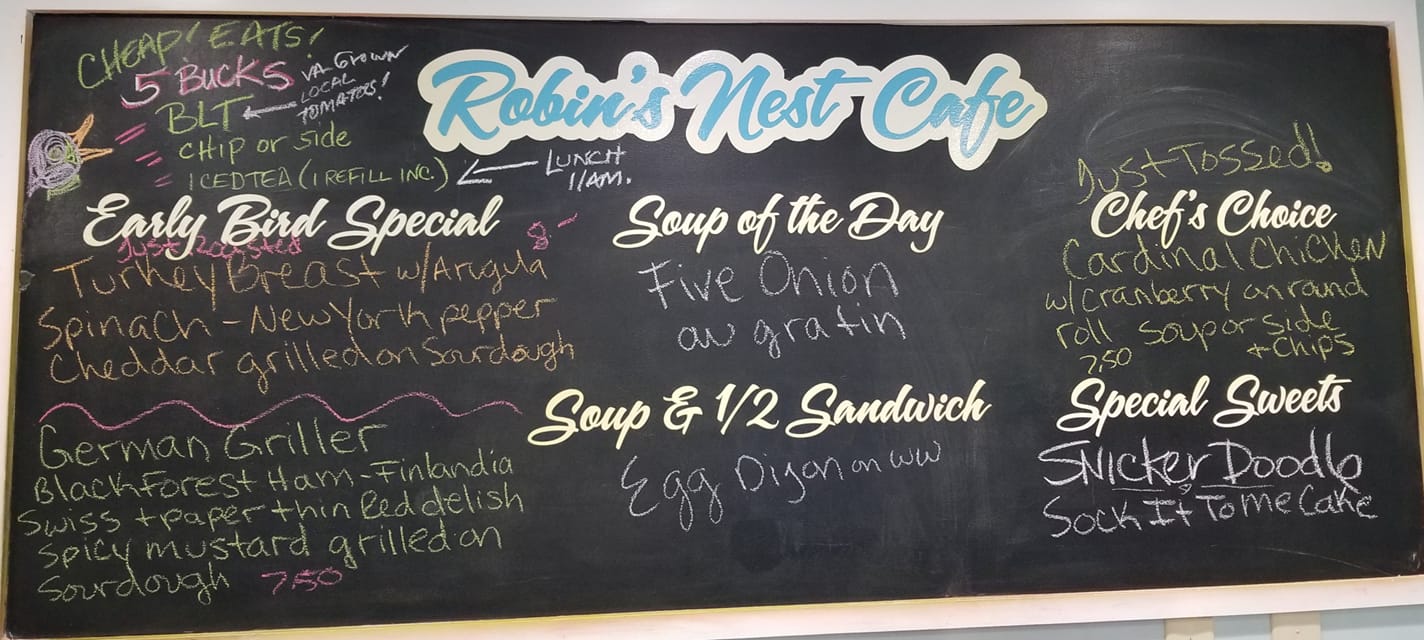 CHEAP! EATS!
5 BUCKS
BLT
VA-GROWN
LOCAL
TOMATOES!
CHIP or side
ICEDTEA (1 REFILL INC.)
LUNCH
11AM.
Robin's Nest Cafe
Early Bird Special
Just Roasted
8-
Turkey Breast w/Arugula
Spinach - New York pepper
Cheddar grilled on Sourdough
German Griller
Black Forest Ham - Finlandia
Swiss + paper thin Red delish
Spicy mustard grilled on
Sourdough 7.50
Soup of the Day
Five Onion
au gratin
Soup & 1/2 Sandwich
Egg Dijon on ww
Just Tossed!
Chef's Choice
Cardinal Chicken
w/cranberry on round
roll soup or side
7.50 + Chips
Special Sweets
SNICKER Doodle
Sock It To Me Cake